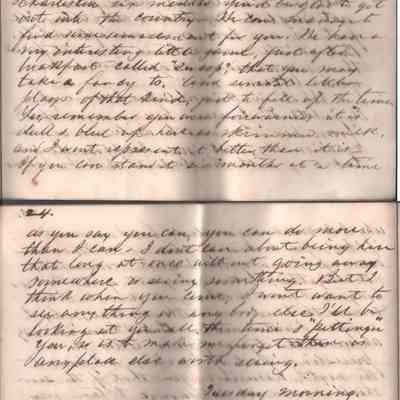 Charleston six months
out into the country. We can manage to
find amusement for you. We have a
very interesting little game, just after
breakfast called "Snap", that you may
take a fancy to. (and several little
plays of that kind, just to fill up the time
Yes, remember you were forewarned, it is
dull & blue up here as skim milk,
and I wont represent it better than it is
If you can stand it six months at a time
24.
as you say you can, you can do more
than I can. I don't care about being here
that long at once without going away
somewhere or seeing something. But I
think when you come, I wont want to
see any thing or any body else. I'll be
looking at you all the time & "pettingu"
you, so as to make me forget there is
anyplace else worth seeing.
Tuesday morning.